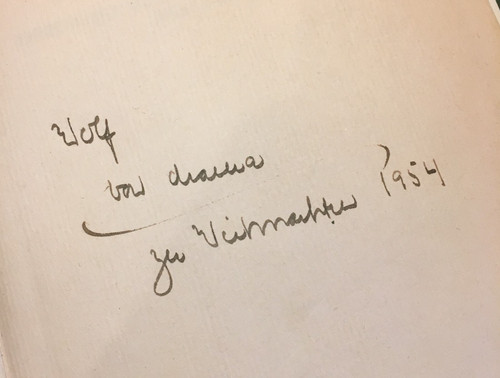 Wolf
von Mama
zu Weihnachten 1954